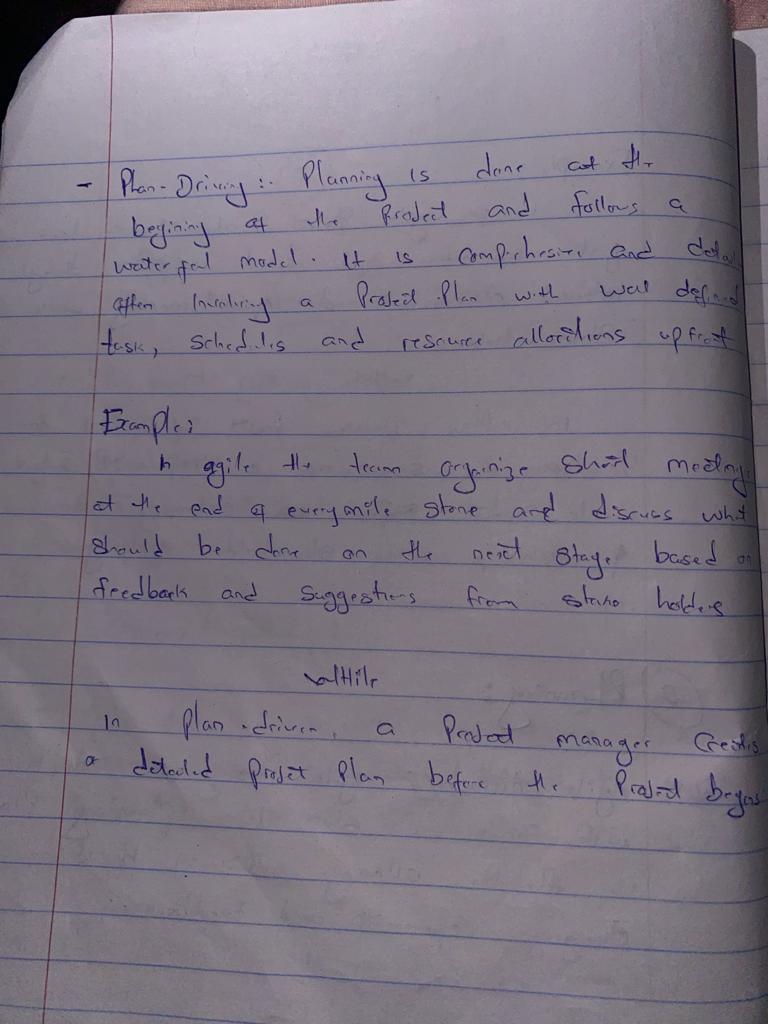 - Plan-Driving :- Planning is done at the
begining of the Project and follows a
waterfall model. It is comprehesive and detail
often Involving a Project Plan with well defined
task, schedules and resource allocations upfront
Example:
In agile the team organize short meeting
at the end of every mile stone and discuss what
should be done on the next stage based on
feedback and suggestions from stake holders
while
In plan-driven, a Project manager Creates
a detailed project plan before the Project begins